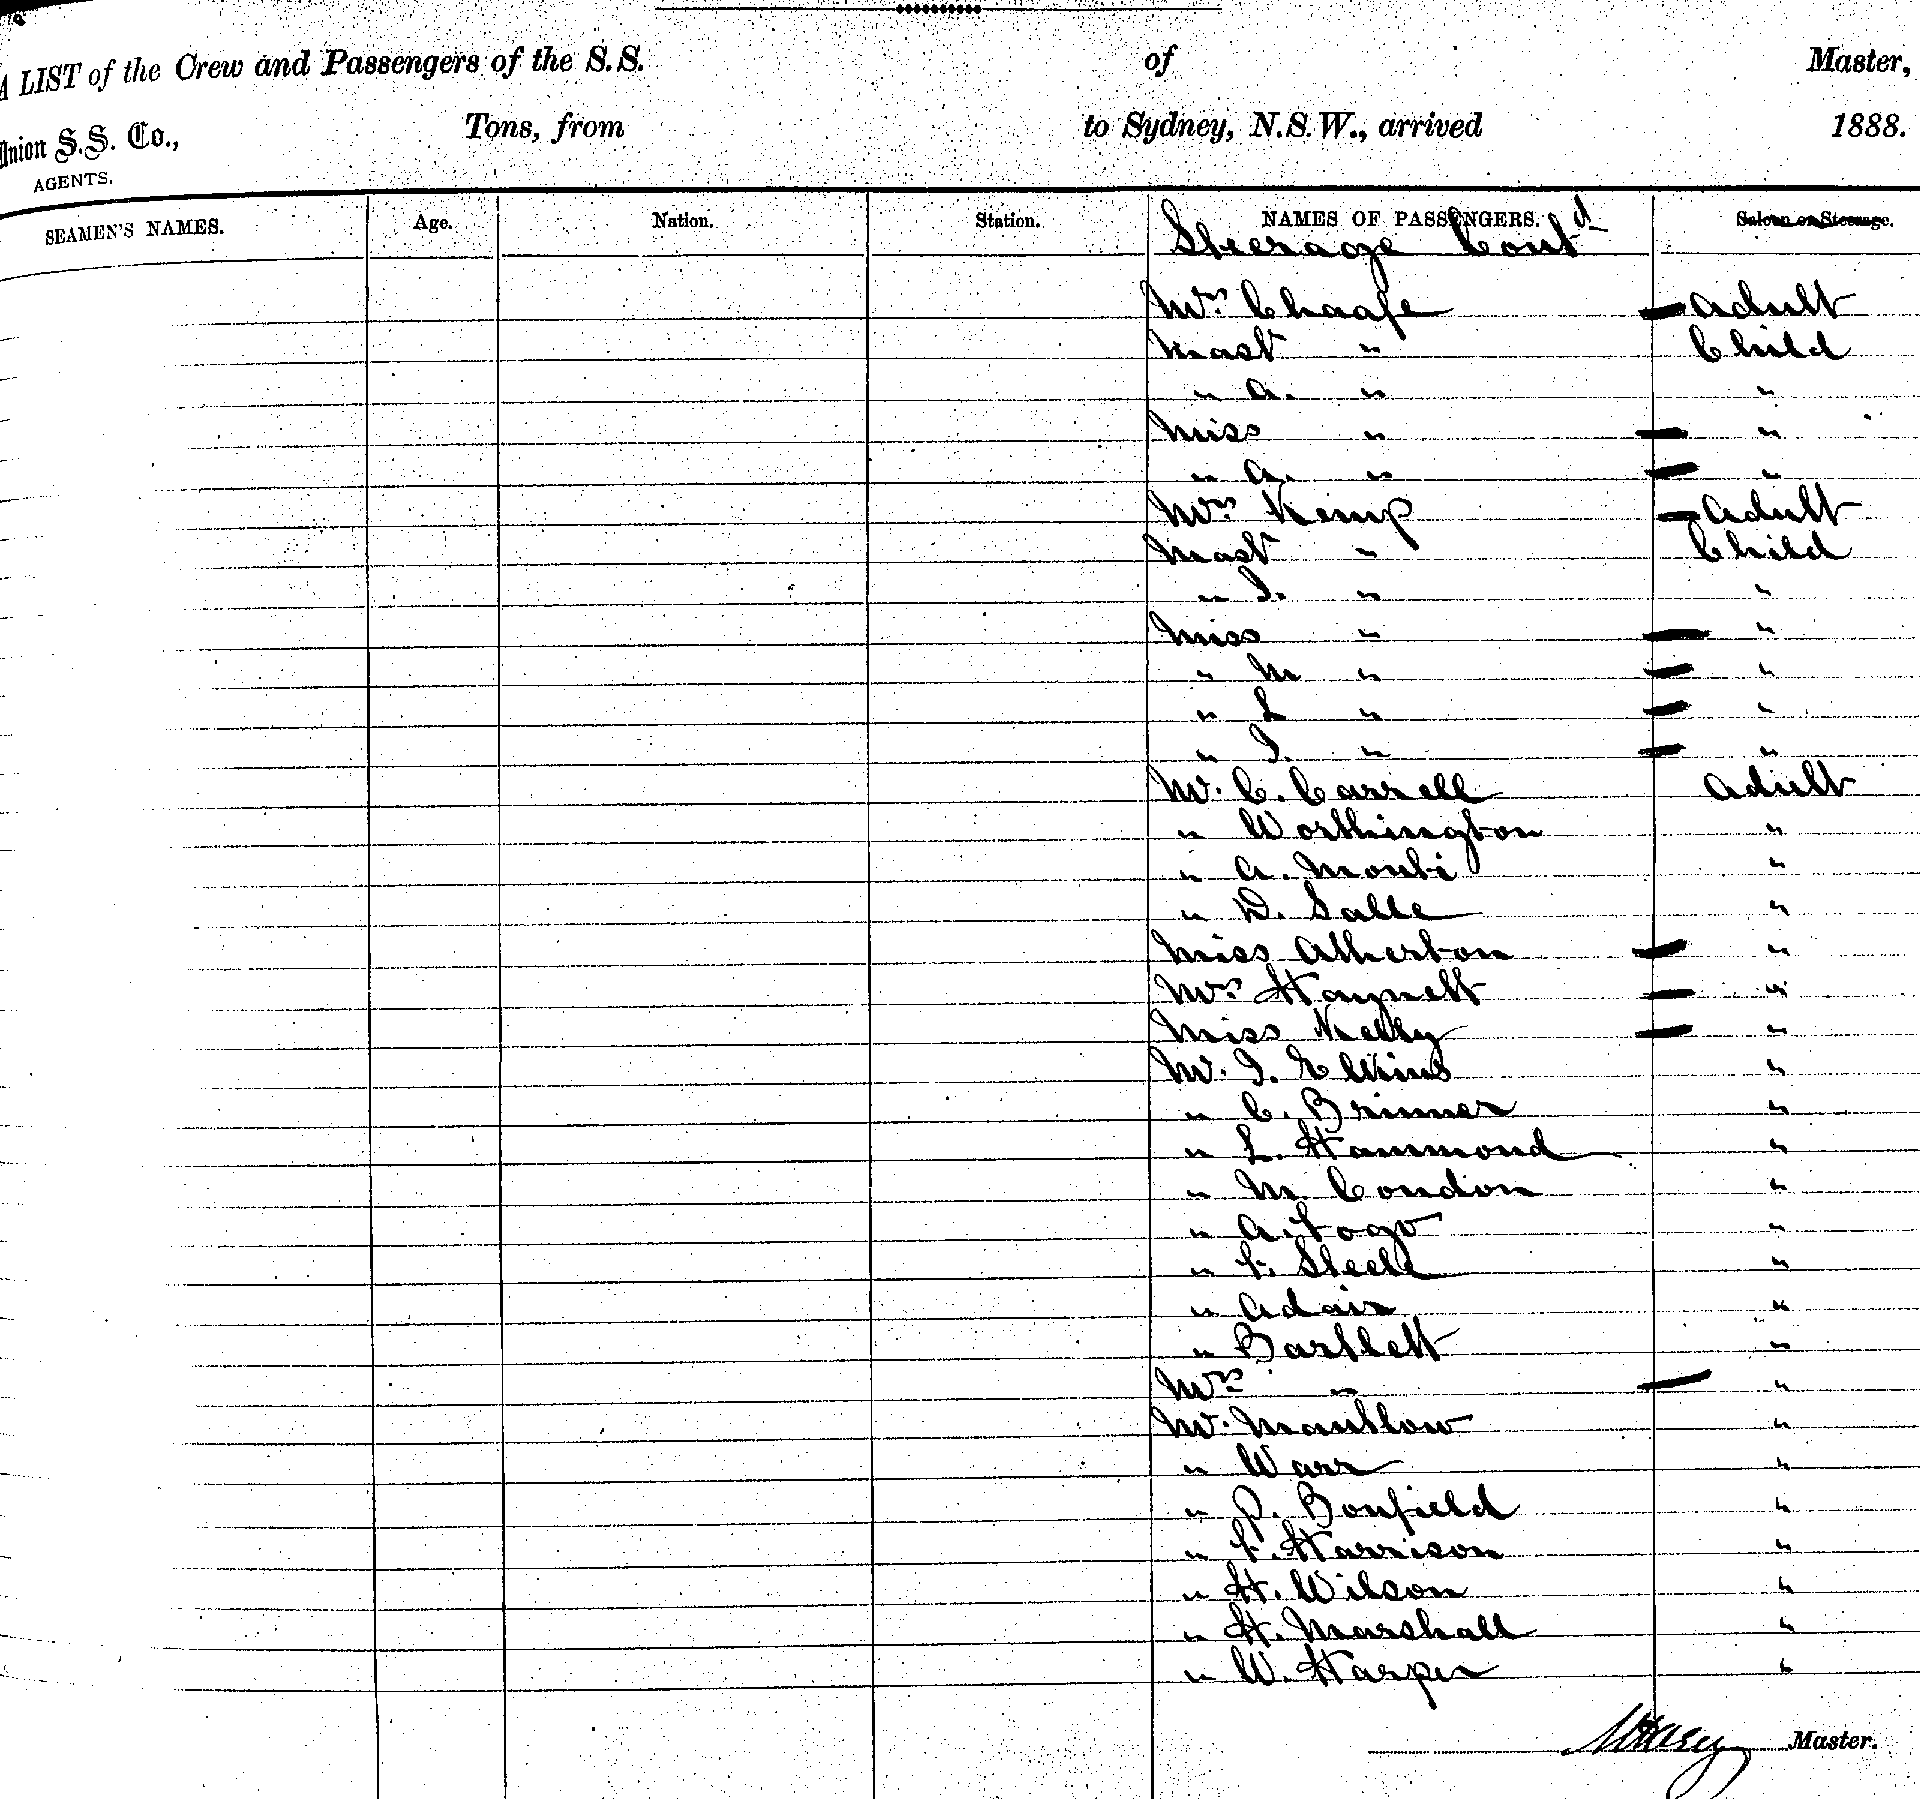 A LIST of the Crew and Passengers of the S.S. of Master,
Union S.S. Co., Tons, from to Sydney, N.S.W., arrived 1888.
AGENTS.
SEAMEN'S NAMES. Age. Nation. Station. NAMES OF PASSENGERS. Saloon or Steerage.
Steerage Contd
Mrs Chaafe Adult
Mast " Child
" A. " "
Miss " "
" A. " "
Mrs Kemp Adult
Mast " Child
" J. " "
Miss " "
" M " "
" L " "
" J. " "
Mr. C. Carrell Adult
" Worthington "
" A. "
" D. "
Miss Atherton "
Mrs Haynett "
Miss Kelly "
Mr. J. Elkins "
" C. Brinner "
" L. Hammond "
" M. Condon "
" A. Fogo "
" F. Steele "
" Adair "
" Bartlett "
Mrs " "
Mr. "
" Warr "
" P. Bonfield "
" F. Harrison "
" H. Wilson "
" H. Marshall "
" W. Harper "
Master.